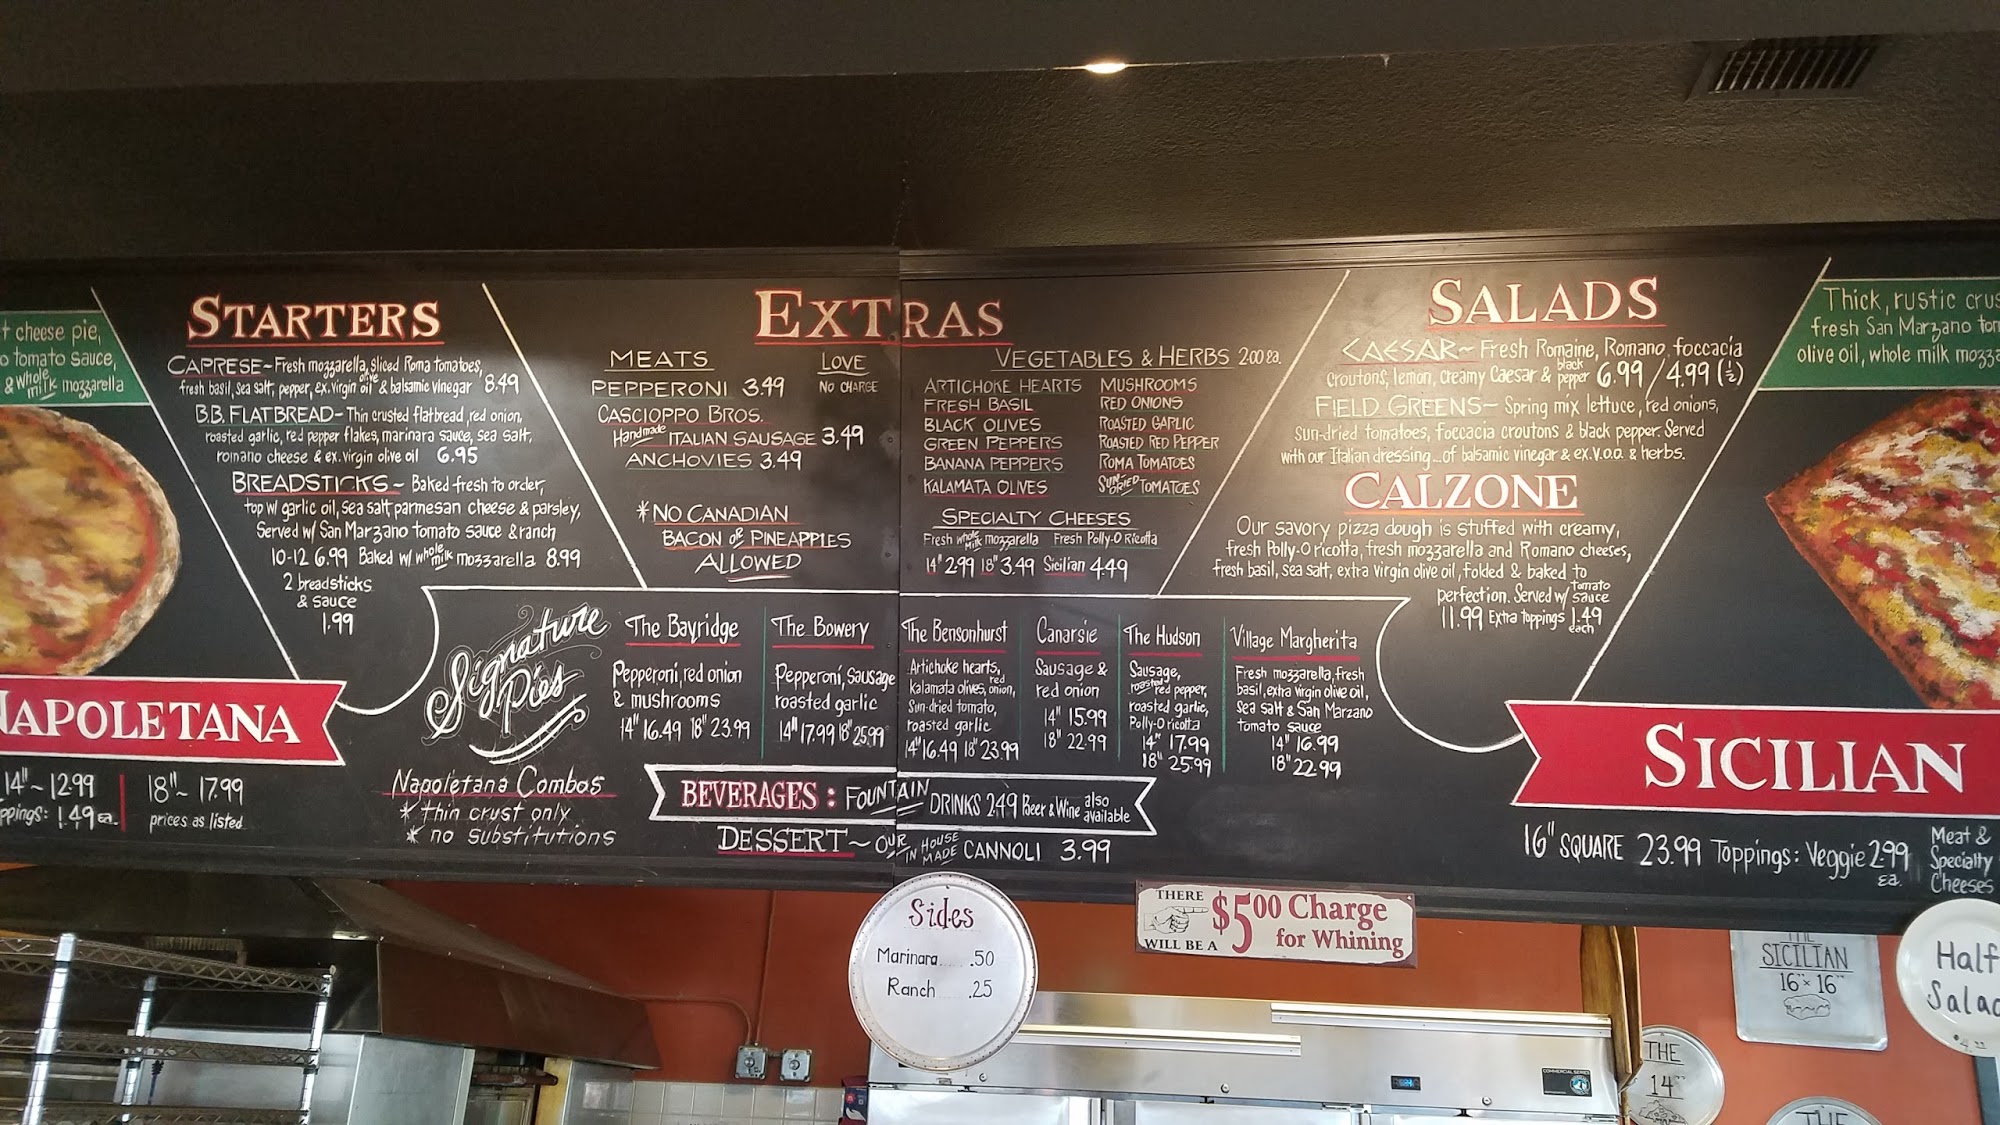 t cheese pie,
o tomato sauce,
& whole milk mozzarella
NAPOLETANA
14"~12.99
18"~17.99
ppings: 1.49 ea.
prices as listed
STARTERS
CAPRESE~Fresh mozzarella, sliced Roma tomatoes,
fresh basil, sea salt, pepper, ex. virgin olive oil & balsamic vinegar 8.49
B.B. FLATBREAD~Thin crusted flatbread, red onion,
roasted garlic, red pepper flakes, marinara sauce, sea salt,
romano cheese & ex. virgin olive oil 6.95
BREADSTICKS~Baked fresh to order,
top w/ garlic oil, sea salt parmesan cheese & parsley,
Served w/ San Marzano tomato sauce & ranch
10-12 6.99 Baked w/ whole milk mozzarella 8.99
2 breadsticks
& sauce
1.99
EXTRAS
MEATS
PEPPERONI 3.49
CASCIOPPO BROS.
Handmade ITALIAN SAUSAGE 3.49
ANCHOVIES 3.49
LOVE
NO CHARGE
*NO CANADIAN
BACON or PINEAPPLES
ALLOWED
VEGETABLES & HERBS 2.00 ea.
ARTICHOKE HEARTS
FRESH BASIL
BLACK OLIVES
GREEN PEPPERS
BANANA PEPPERS
KALAMATA OLIVES
MUSHROOMS
RED ONIONS
ROASTED GARLIC
ROASTED RED PEPPER
ROMA TOMATOES
SUN-DRIED TOMATOES
SPECIALTY CHEESES
Fresh whole milk mozzarella Fresh Polly-O Ricotta
14" 2.99 18" 3.49 Sicilian 4.49
SALADS
CAESAR~Fresh Romaine, Romano, foccacia
croutons, lemon, creamy Caesar & black pepper 6.99/4.99 (½)
FIELD GREENS~Spring mix lettuce, red onions,
sun-dried tomatoes, foccacia croutons & black pepper. Served
with our Italian dressing...of balsamic vinegar & ex.v.o.o. & herbs.
CALZONE
Our savory pizza dough is stuffed with creamy,
fresh Polly-O ricotta, fresh mozzarella and Romano cheeses,
fresh basil, sea salt, extra virgin olive oil, folded & baked to
perfection. Served w/ tomato sauce
11.99 Extra toppings 1.49 each
Signature
Pies
Napoletana Combos
* thin crust only
* no substitutions
The Bayridge
Pepperoni, red onion
& mushrooms
14" 16.49 18" 23.99
The Bowery
Pepperoni, sausage
roasted garlic
14" 17.99 18" 25.99
The Bensonhurst
Artichoke hearts,
kalamata olives, red onion,
Sun-dried tomato,
roasted garlic
14" 16.49 18" 23.99
Canarsie
Sausage &
red onion
14" 15.99
18" 22.99
The Hudson
Sausage,
roasted red pepper,
roasted garlic,
Polly-O ricotta
14" 17.99
18" 25.99
Village Margherita
Fresh mozzarella, fresh
basil, extra virgin olive oil,
sea salt & San Marzano
tomato sauce
14" 16.99
18" 22.99
BEVERAGES: FOUNTAIN DRINKS 2.49 Beer & Wine also available
DESSERT~OUR IN HOUSE MADE CANNOLI 3.99
Thick, rustic crus
fresh San Marzano tom
olive oil, whole milk mozza
SICILIAN
16" SQUARE 23.99 Toppings: Veggie 2.99 ea.
Meat &
Specialty
Cheeses
Sides
Marinara .50
Ranch .25
THERE
WILL BE A
$5.00 Charge
for Whining
THE
SICILIAN
16" x 16"
Half
Salad
THE
14"
THE